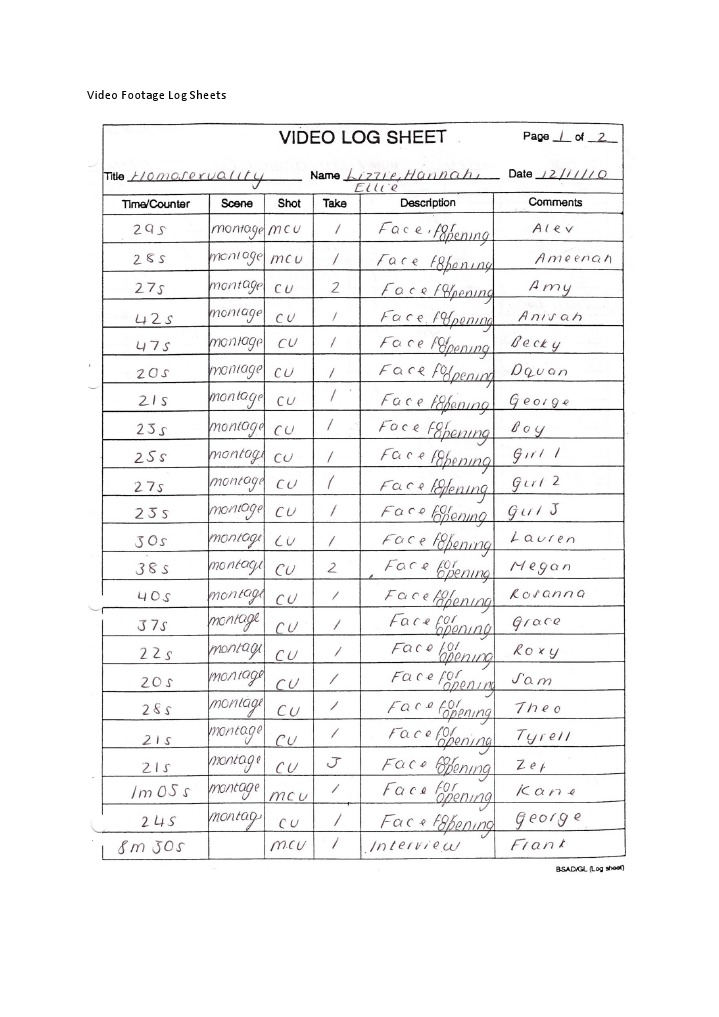 Video Footage Log Sheets
VIDEO LOG SHEET Page 1 of 2
Title Homosexuality Name Lizzie, Hannah, Ellie Date 12/11/10
Time/Counter Scene Shot Take Description Comments
29s montage mcu 1 Face for opening Alev
28s montage mcu 1 Face for opening Ameenah
27s montage cu 2 Face for opening Amy
42s montage cu 1 Face for opening Anisah
47s montage cu 1 Face for opening Becky
20s montage cu 1 Face for opening Dquan
21s montage cu 1 Face for opening George
23s montage cu 1 Face for opening Boy
25s montage cu 1 Face for opening Girl 1
27s montage cu 1 Face for opening Girl 2
23s montage cu 1 Face for opening Girl 3
30s montage cu 1 Face for opening Lauren
38s montage cu 2 Face for opening Megan
40s montage cu 1 Face for opening Rosanna
37s montage cu 1 Face for opening Grace
22s montage cu 1 Face for opening Roxy
20s montage cu 1 Face for opening Sam
28s montage cu 1 Face for opening Theo
21s montage cu 1 Face for opening Tyrell
21s montage cu 3 Face for opening
1m 05s montage mcu 1 Face for opening Kane
24s montage cu 1 Face for opening George
8m 30s mcu 1 Interview Frank
BSAD/GL (Log sheet)